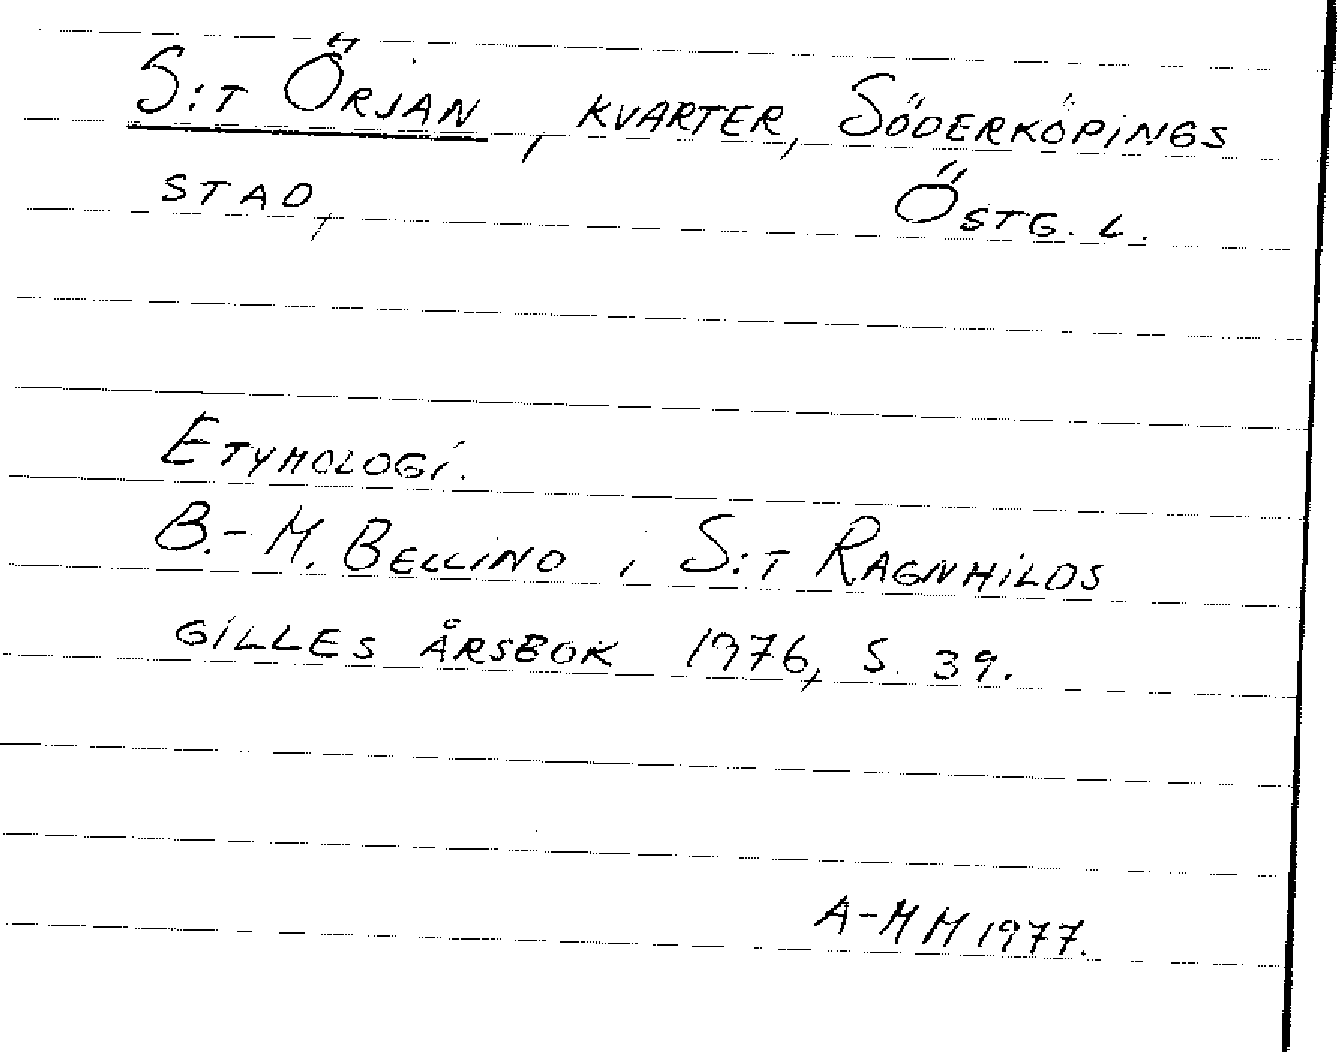 S:t Örjan, kvarter, Söderköpings
stad, Östg. l.
Etymologi.
B.-M. Bellind, i S:t Ragnhilds
gilles årsbok 1976, s. 39.
A-MM 1977.